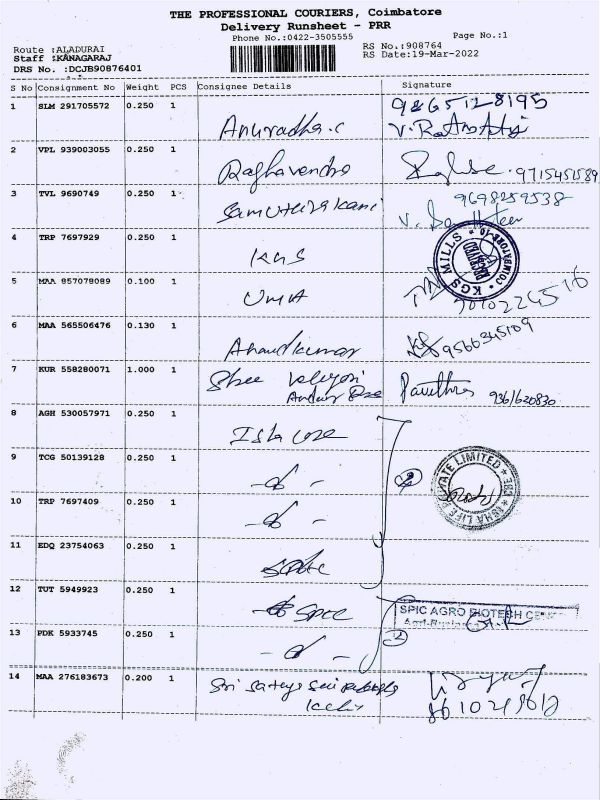 THE PROFESSIONAL COURIERS, Coimbatore
Delivery Runsheet - PRR
Phone No.:0422-3505555
Page No.:1
Route :ALADURAI
Staff :KANAGARAJ
DRS No. :DCJB90876401
RS No.:908764
RS Date:19-Mar-2022
S No Consignment No Weight PCS Consignee Details Signature
1 SLM 291705572 0.250 1 Anuradha.c 9865128195
2 VPL 939003055 0.250 1 Raghavendra 9715451589
3 TVL 9690749 0.250 1 Samuthirakani 9698259538
4 TRP 7697929 0.250 1 KGS
KGS MILLS RECEIVED COIMBATORE-10
5 MAA 857078089 0.100 1 UMA
6 MAA 565506476 0.130 1 Anandkumar 9566345109
7 KUR 558280071 1.000 1 Shree Pavithra 9361620830
8 AGH 530057971 0.250 1 Isha
9 TCG 50139128 0.250 1
ISHA LIFE PRIVATE LIMITED
10 TRP 7697409 0.250 1
11 EDQ 23754063 0.250 1
12 TUT 5949923 0.250 1 Spic
SPIC AGRO BIOTECH
Agri-Business
13 PDK 5933745 0.250 1
14 MAA 276183673 0.200 1 Sri Satya Sai